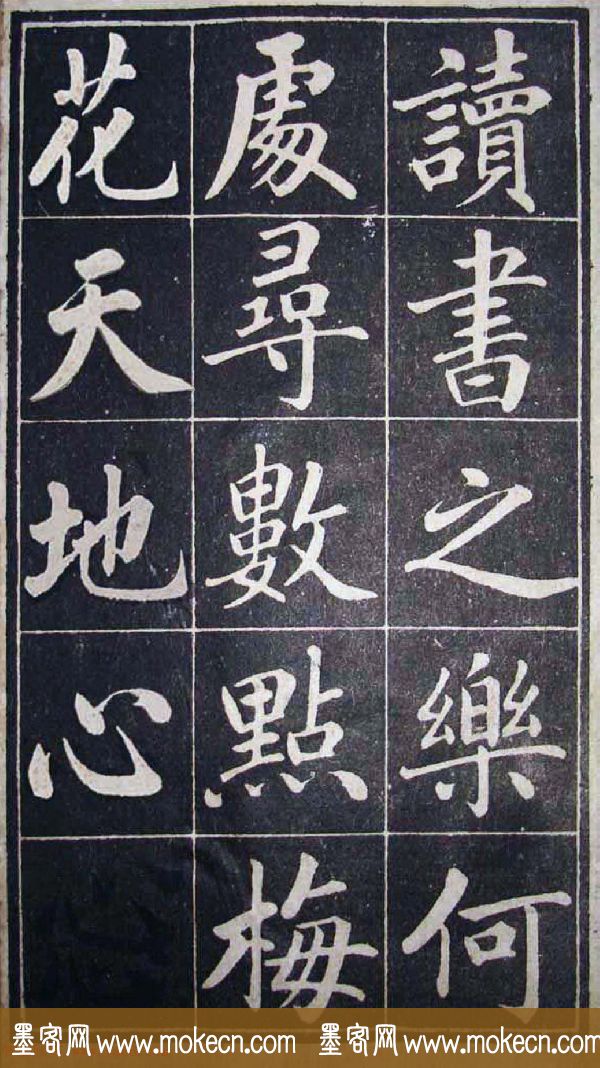 讀書之樂何
處尋數點梅
花天地心
墨客网 www.mokecn.com 墨客网 www.mokecn.com